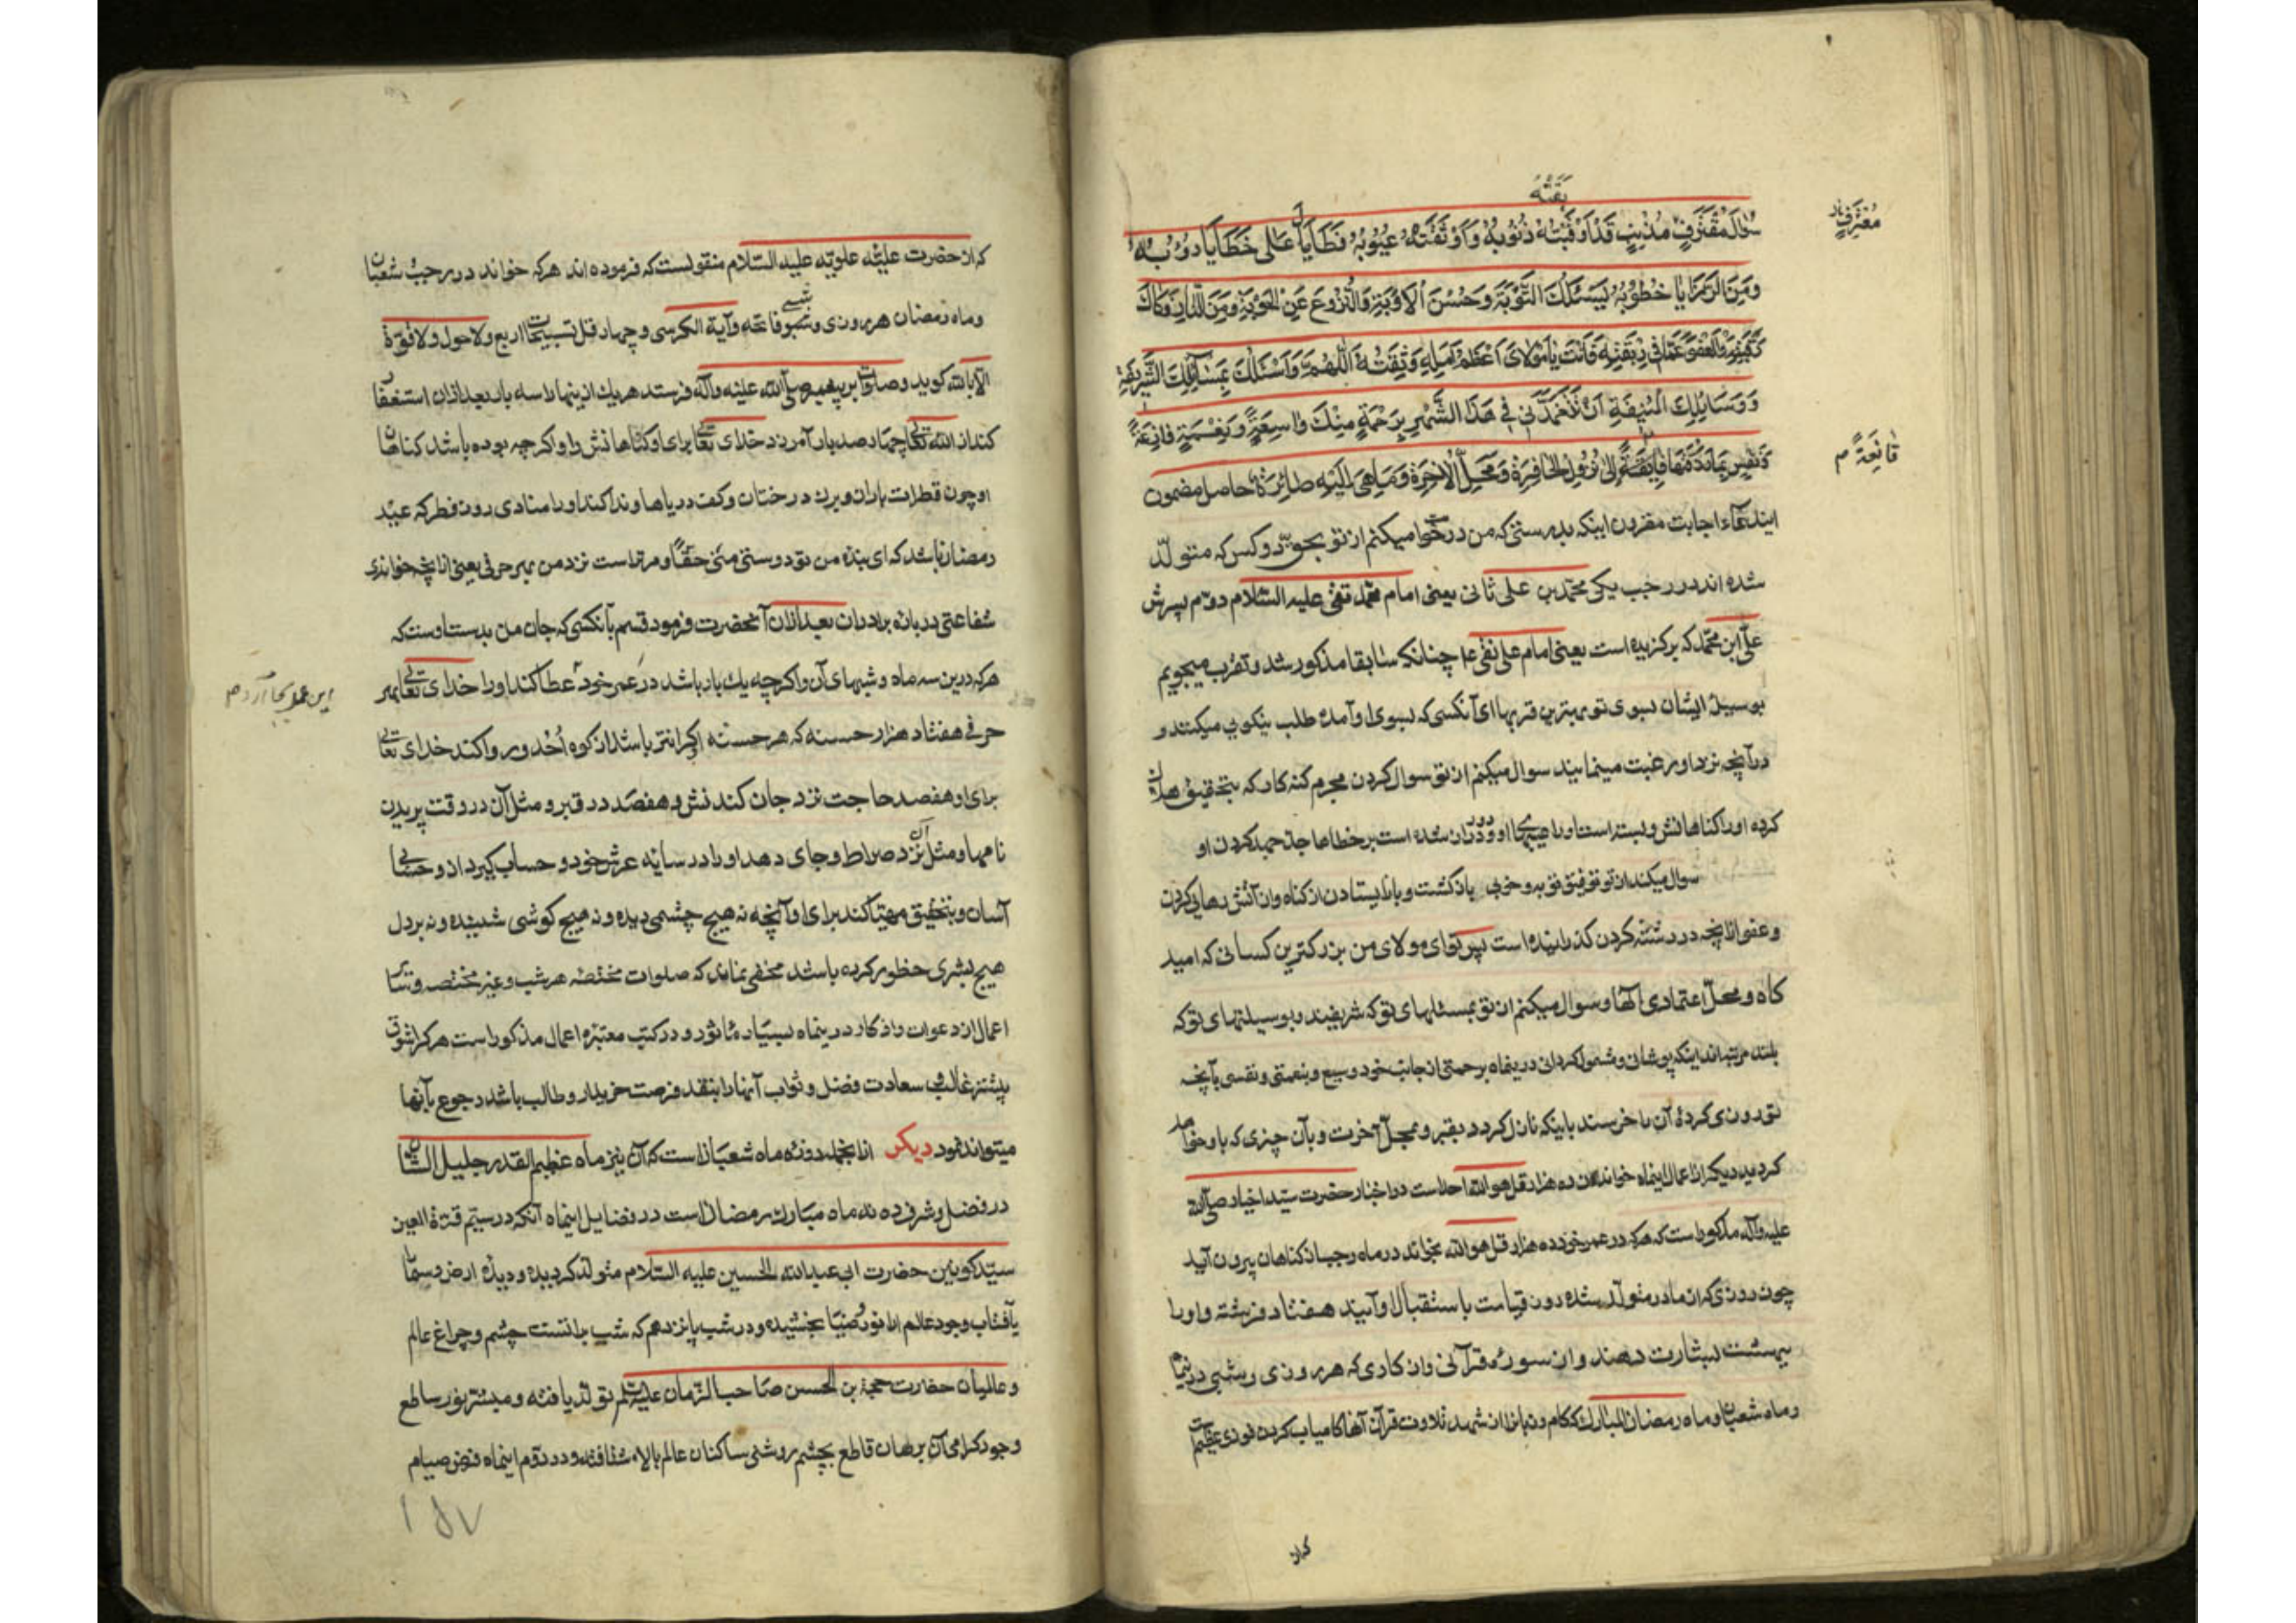 بقته
سؤال مقترف مذنب قد اوبقته ذنوبه و اوثقته عیوبه فطال علی خطایا دؤوبه
معترف
ومن الرزایا خطوبه یسئلك التوبة وحسن الاوبة والنزوع عن الحوبة ومن النار فكاك
رقبته والعفو عما فی ربقته فانت یا مولای اعظم امله وثقته اللهم واسئلك بمسائلك الشریفة
ووسائلك المنیفة ان تتغمدنی فی هذا الشهر برحمة منك واسعة ونعمة وازعة
قانعة م
ونفس بما رزقتها قانعة الی نزول الحافرة ومحل الاخرة وما هی الیه صائرة حاصل مضمون
ایندعاء اجابت مقرون اینکه بدرستی که من درخواست میکنم از تو بحق دو کس که متولد
شده اند در رجب یکی محمد بن علی ثانی یعنی امام محمد تقی علیه السلام دوم پسرش
علی ابن محمد که برکزیده است یعنی امام علی نقی ع چنانکه سابقا مذکور شد و تقرب میجویم
بوسیلۀ ایشان بسوی تو بهترین قربها ای آنکسی که بسوی او آمده طلب نیکویی میکنند و
در آنچه نزد او رغبت مینمایند سوال میکنم از تو سوال کردن مجرم کنه کار که بتحقیق هلاك
کرده اورا کناهانش و بسته است اورا عیبهای او و دور و دراز شده است بر خطاها جد و جهد کردن او
سوال میکند از تو توفیق توبه و خوبی بازکشت و باز ایستادن از کناه و از آتش رهایی کردن
و عفو از آنچه در رشته کردن کذرانیده است پس توای مولای من بزرکترین کسانی که امید
کاه و محل اعتمادی الها و سوال میکنم از تو بمسئلهای تو که شریفند و بوسیلتهای تو که
بلند مرتبه اند اینکه بپوشان و شمول کردان در ینماه برحمتی از جانب خود وسیع و بنعمتی و نفسی بآنچه
تو روزی کردۀ آن را خرسند باینکه نازل کردد بقبر و محل آخرت و بآن چیزی که باو خواهد
کردید دیکر از اعمال اینماه خواندن ده هزار قل هو الله احد است در اخبار حضرت سید اخیار صلی الله
علیه وآله مذکور است که هر که در عمر خود ده هزار قل هو الله بخواند در ماه رجب از کناهان بیرون آید
چون روزی که از مادر متولد شده روز قیامت باستقبال او آیند هفتاد فرشته و اورا
ببهشت بشارت دهند و از سورۀ قرآنی و اذکاری که هر روزی و شبی در ینماه
و ماه شعبان و ماه رمضان المبارك کام و زبانرا از شهد تلاوت قرآن آنها کامیاب کردن فوزی عظیمست
که از
که از حضرت علیۀ علویه علیه السلام منقولست که فرموده اند هر که خواند در رجب شعبان
و ماه رمضان هر روزی و شبی فاتحه و آیة الکرسی و چهار قل تسبیحات اربع و لا حول ولا قوة
الا بالله کوید و صلوات بر پیغمبر صلی الله علیه وآله فرستد هر یك از ینها را سه بار بعد از ان استغفار
کند از الله تعالی چهار صد بار آمرزد خدای تعالی برای او کناهانش را و اکرچه بوده باشد کناهان
او چون قطرات باران و برك درختان و کف دریاها و ندا کند اورا منادی روز فطر که عید
رمضان باشد که ای بندۀ من تو دوستی منی حقا و مر تراست نزد من بهر حرفی یعنی از آنچه خواندی
شفاعتی در بارۀ برادران بعد از ان آنحضرت فرمود قسم بآنکسی که جان من بدست اوست که
هر که در ین سه ماه و شبهای آن و اکرچه یك بار باشد در عمر خود عطا کند اورا خدای تعالی بهر
این عمل بجا آرد م
حرفی هفتاد هزار حسنه که هر حسنه کرانتر باشد از کوه اُحد و روا کند خدای تعالی
برای او هفصد حاجت نزد جان کندنش و هفصد در قبر و مثل آن در وقت پریدن
نامها و مثل آن نزد صراط و جای دهد اورا در سایه عرش خود و حساب کیرد از و حسابی
آسان و بتحقیق مهیا کند برای او آنچه نه هیچ چشمی دیده و نه هیچ کوشی شنیده و نه بر دل
هیچ بشری خطور کرده باشد مخفی نماند که صلوات مختصه هر شب و غیر مختصه و سایر
اعمال از دعوات و اذکار در ینماه بسیار ماثور و در کتب معتبره اعمال مذکور است هر کرا شوق
بیشتر غالب و سعادت فضل و ثواب آنها را بنقد فرصت خریدار و طالب باشد رجوع بآنها
میتواند نمود دیکر از انجمله روزه ماه شعبان است که آن نیز ماه عظیم القدر جلیل الشان
در فضل و شرف ده نه ماه مبارك رمضان است در فضایل اینماه آنکه در سیم قرة العین
سید کونین حضرت ابی عبدالله الحسین علیه السلام متولد کردیده و دیدۀ ارض و سما
بآفتاب وجود عالم ارا نور و ضیا بخشیده و در شب پانزدهم که شب براتست چشم و چراغ عالم
و عالمیان حضرت حجة بن الحسن صاحب الزمان علیه السلام تولد یافته و مبشر نور ساطع
وجود کرامی آن برهان قاطع بچشم روشنی ساکنان عالم بالا شتافته و در دوم اینماه فرض صیام